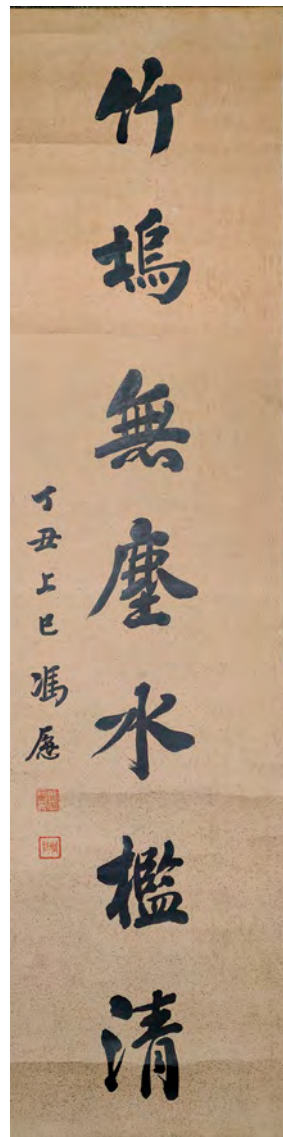 竹塢無塵水檻清
丁丑上巳馮